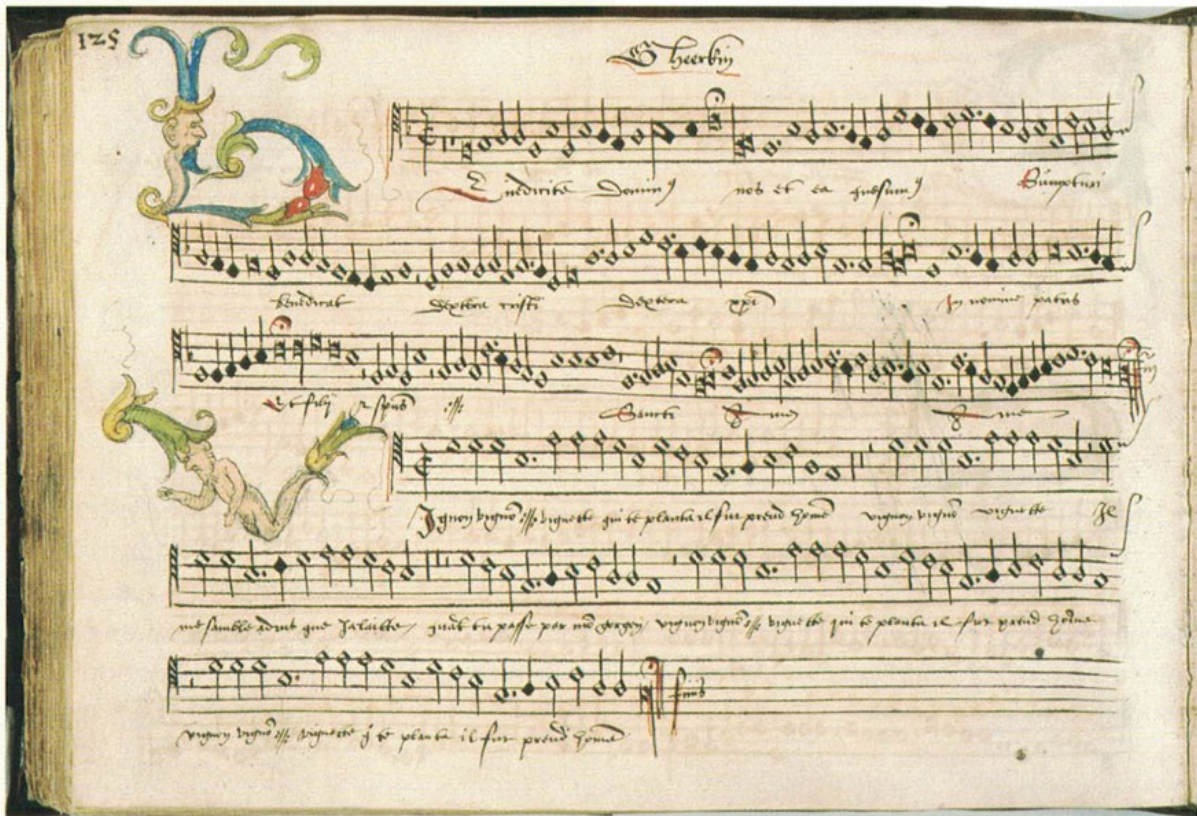 125
Gheerkin
Enedicite Domin9 nos et ea que sum9 Sumpturi
benedicat dextera cristi dextera xpi In nomine patris
Et filij et spūs :||: Sancti Amen Amen
Ignon vignon :||: vignette qui te planta il fut preud home vignon vignon vignette Il
me samble advis que Jalaitte quāt tu passe par mō gorgon vignon vignon :||: vignette qui te planta il fut preud home
vignon vignon :||: vignette q te planta il fut preud home
finis